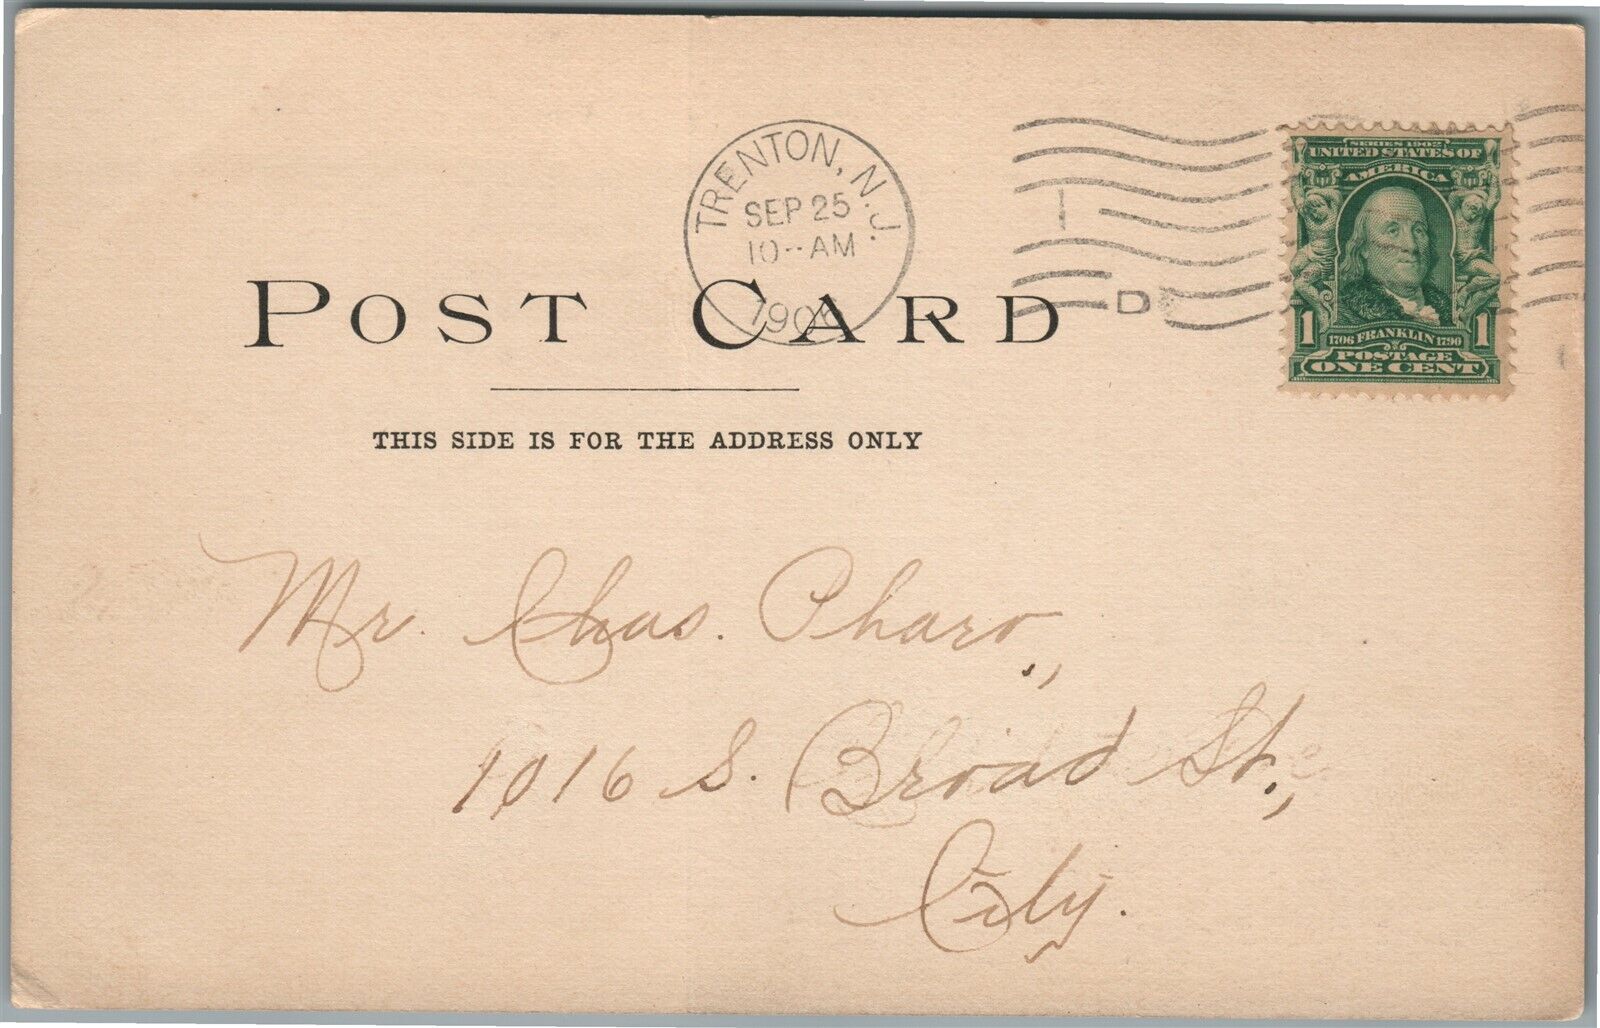 TRENTON, N.J.
SEP 25
10--AM
1906
D
SERIES 1902
UNITED STATES OF
AMERICA
1 1706 FRANKLIN 1790 1
POSTAGE
ONE CENT
POST CARD
THIS SIDE IS FOR THE ADDRESS ONLY
Mr. Chas. Pharo,
1016 S. Broad St.,
City.